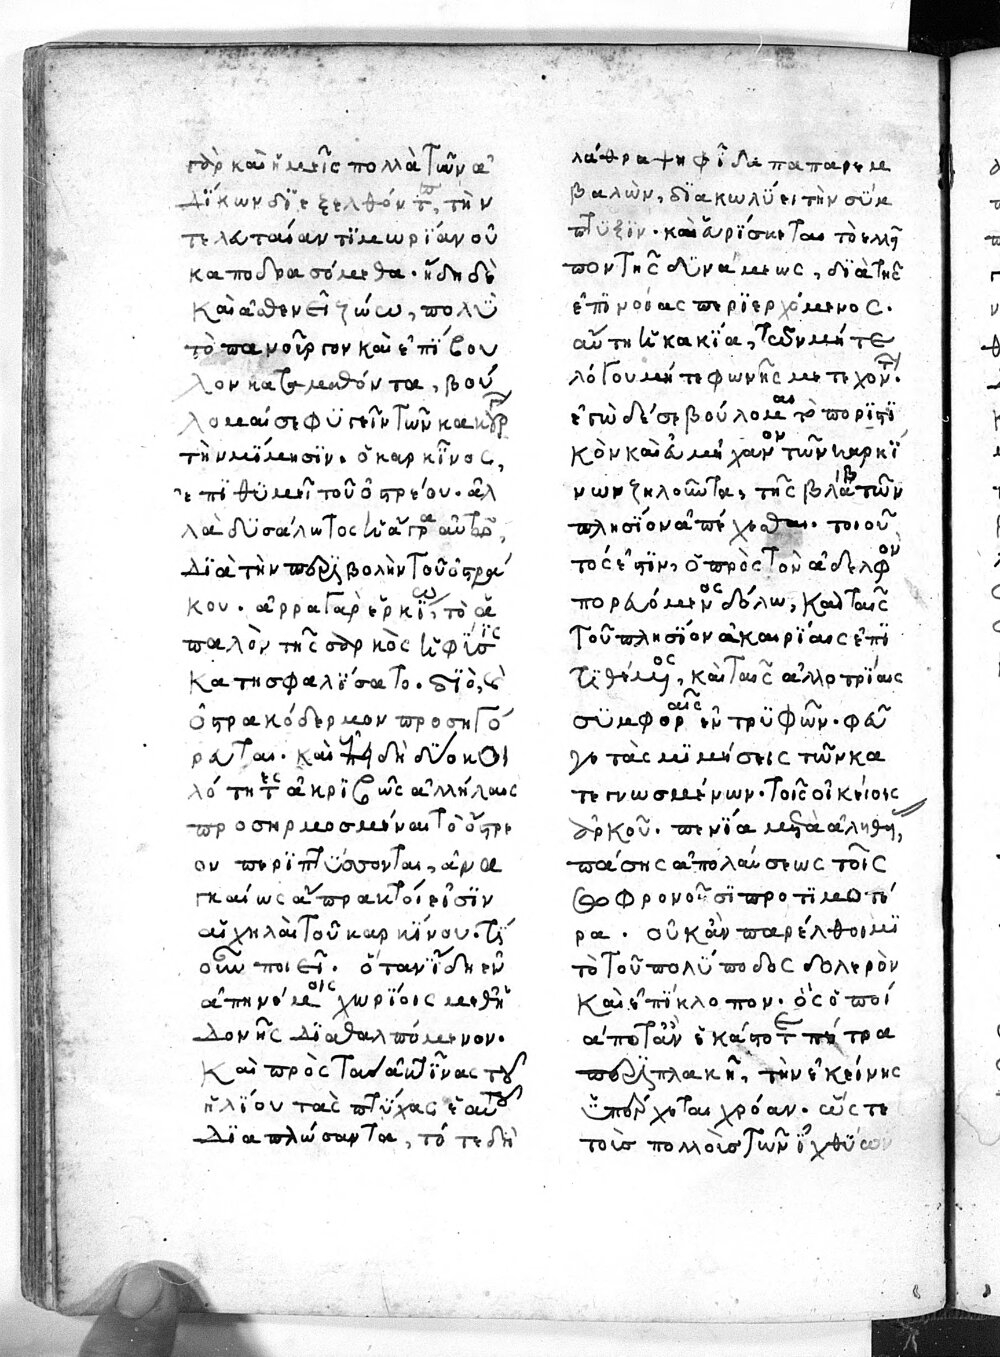 γὰρ καὶ ἡμεῖς πολλὰ τῶν ἀ
δίκων διεξελθόντ(ες), τὴν
τελευταίαν τιμωρίαν οὐ
κ ἀποδρασόμεθα· ἤδη δὲ
καὶ ἀσθενεῖ ζώω, πολὺ
τὸ πανοῦργον καὶ ἐπίβου
λον καταμαθόντα, βού
λομαί σε φυγεῖν τῶν κακούργ
τὴν μίμησιν. ὁ καρκῖνος,
ἐπιθυμεῖ τοῦ ὀστρέου· ἀλ
λὰ δυσάλωτος ἡ ἄγρα αὐτῶ,
διὰ τὴν περιβολὴν τοῦ ὀστρά
κου· ἀρραγεῖ γὰρ ἑρκίω, τὸ ἁ
παλὸν τῆς σαρκὸς ἡ φύσις
κατησφαλίσατο. διὸ, καὶ
ὀστρακόδερμον προσηγό
ρευται· καὶ ἐπειδὴ δύο κοι
λότητες ἀκριβῶς ἀλλήλαις
προσηρμοσμέναι τὸ ὄστρε
ον περιπτύσσονται, ἀνα
γκαίως ἄπρακτοί εἰσιν
αἱ χηλαὶ τοῦ καρκίνου· τί
οὖν ποιεῖ· ὅταν ἴδη ἐν
ἀπηνέμοις χωρίοις μεθ' ἡ
δονῆς διαθαλπόμενον·
καὶ πρὸς τὰς ἀκτῖνας τοῦ
ἡλίου τὰς πτύχας ἑαυτοῦ
διαπλώσαντα, τότε δὴ
λάθρα ψηφῖδα παρεμ
βαλὼν, διακωλύει τὴν σύμ
πτυξιν· καὶ εὑρίσκεται τὸ ἐλλεῖ
πον τῆς δυνάμεως, διὰ τῆς
ἐπινοίας περιερχόμενος.
αὕτη ἡ κακία, τῶν μήτε
λόγου μήτε φωνῆς μετεχόντ·
ἐγὼ δέ σε βούλομαι τὸ ποριστι
κὸν καὶ εὐμήχανον τῶν καρκί
νων ζηλοῦντα, τῆς βλάβης τῶν
πλησίον ἀπέχεσθαι· τοιοῦ
τός ἐστιν, ὁ πρὸς τὸν ἀδελφὸν
πορευόμενος δόλω, καὶ ταῖς
τοῦ πλησίον ἀκαιρίαις ἐπι
τιθέμενος, καὶ ταῖς ἀλλοτρίαις
συμφοραῖς ἐντρυφῶν· φεῦ
γε τὰς μιμήσεις τῶν κα
τεγνωσμένων· τοῖς οἰκείοις
ἀρκοῦ· πενία μετὰ ἀληθ,
πάσης ἀπολαύσεως τοῖς
σωφρονοῦσι προτιμοτέ
ρα· οὐκ ἂν παρέλθοιμι
τὸ τοῦ πολύποδος δολερὸν
καὶ ἐπίκλοπον· ὃς ὁποί
α ποτ' ἂν ἑκάστοτε πέτρα
περιπλακῆ, τὴν ἐκείνης
ὑπέρχεται χρόαν· ὥστε
τοὶσ πολλοὶσ τῶν ἰχθύων